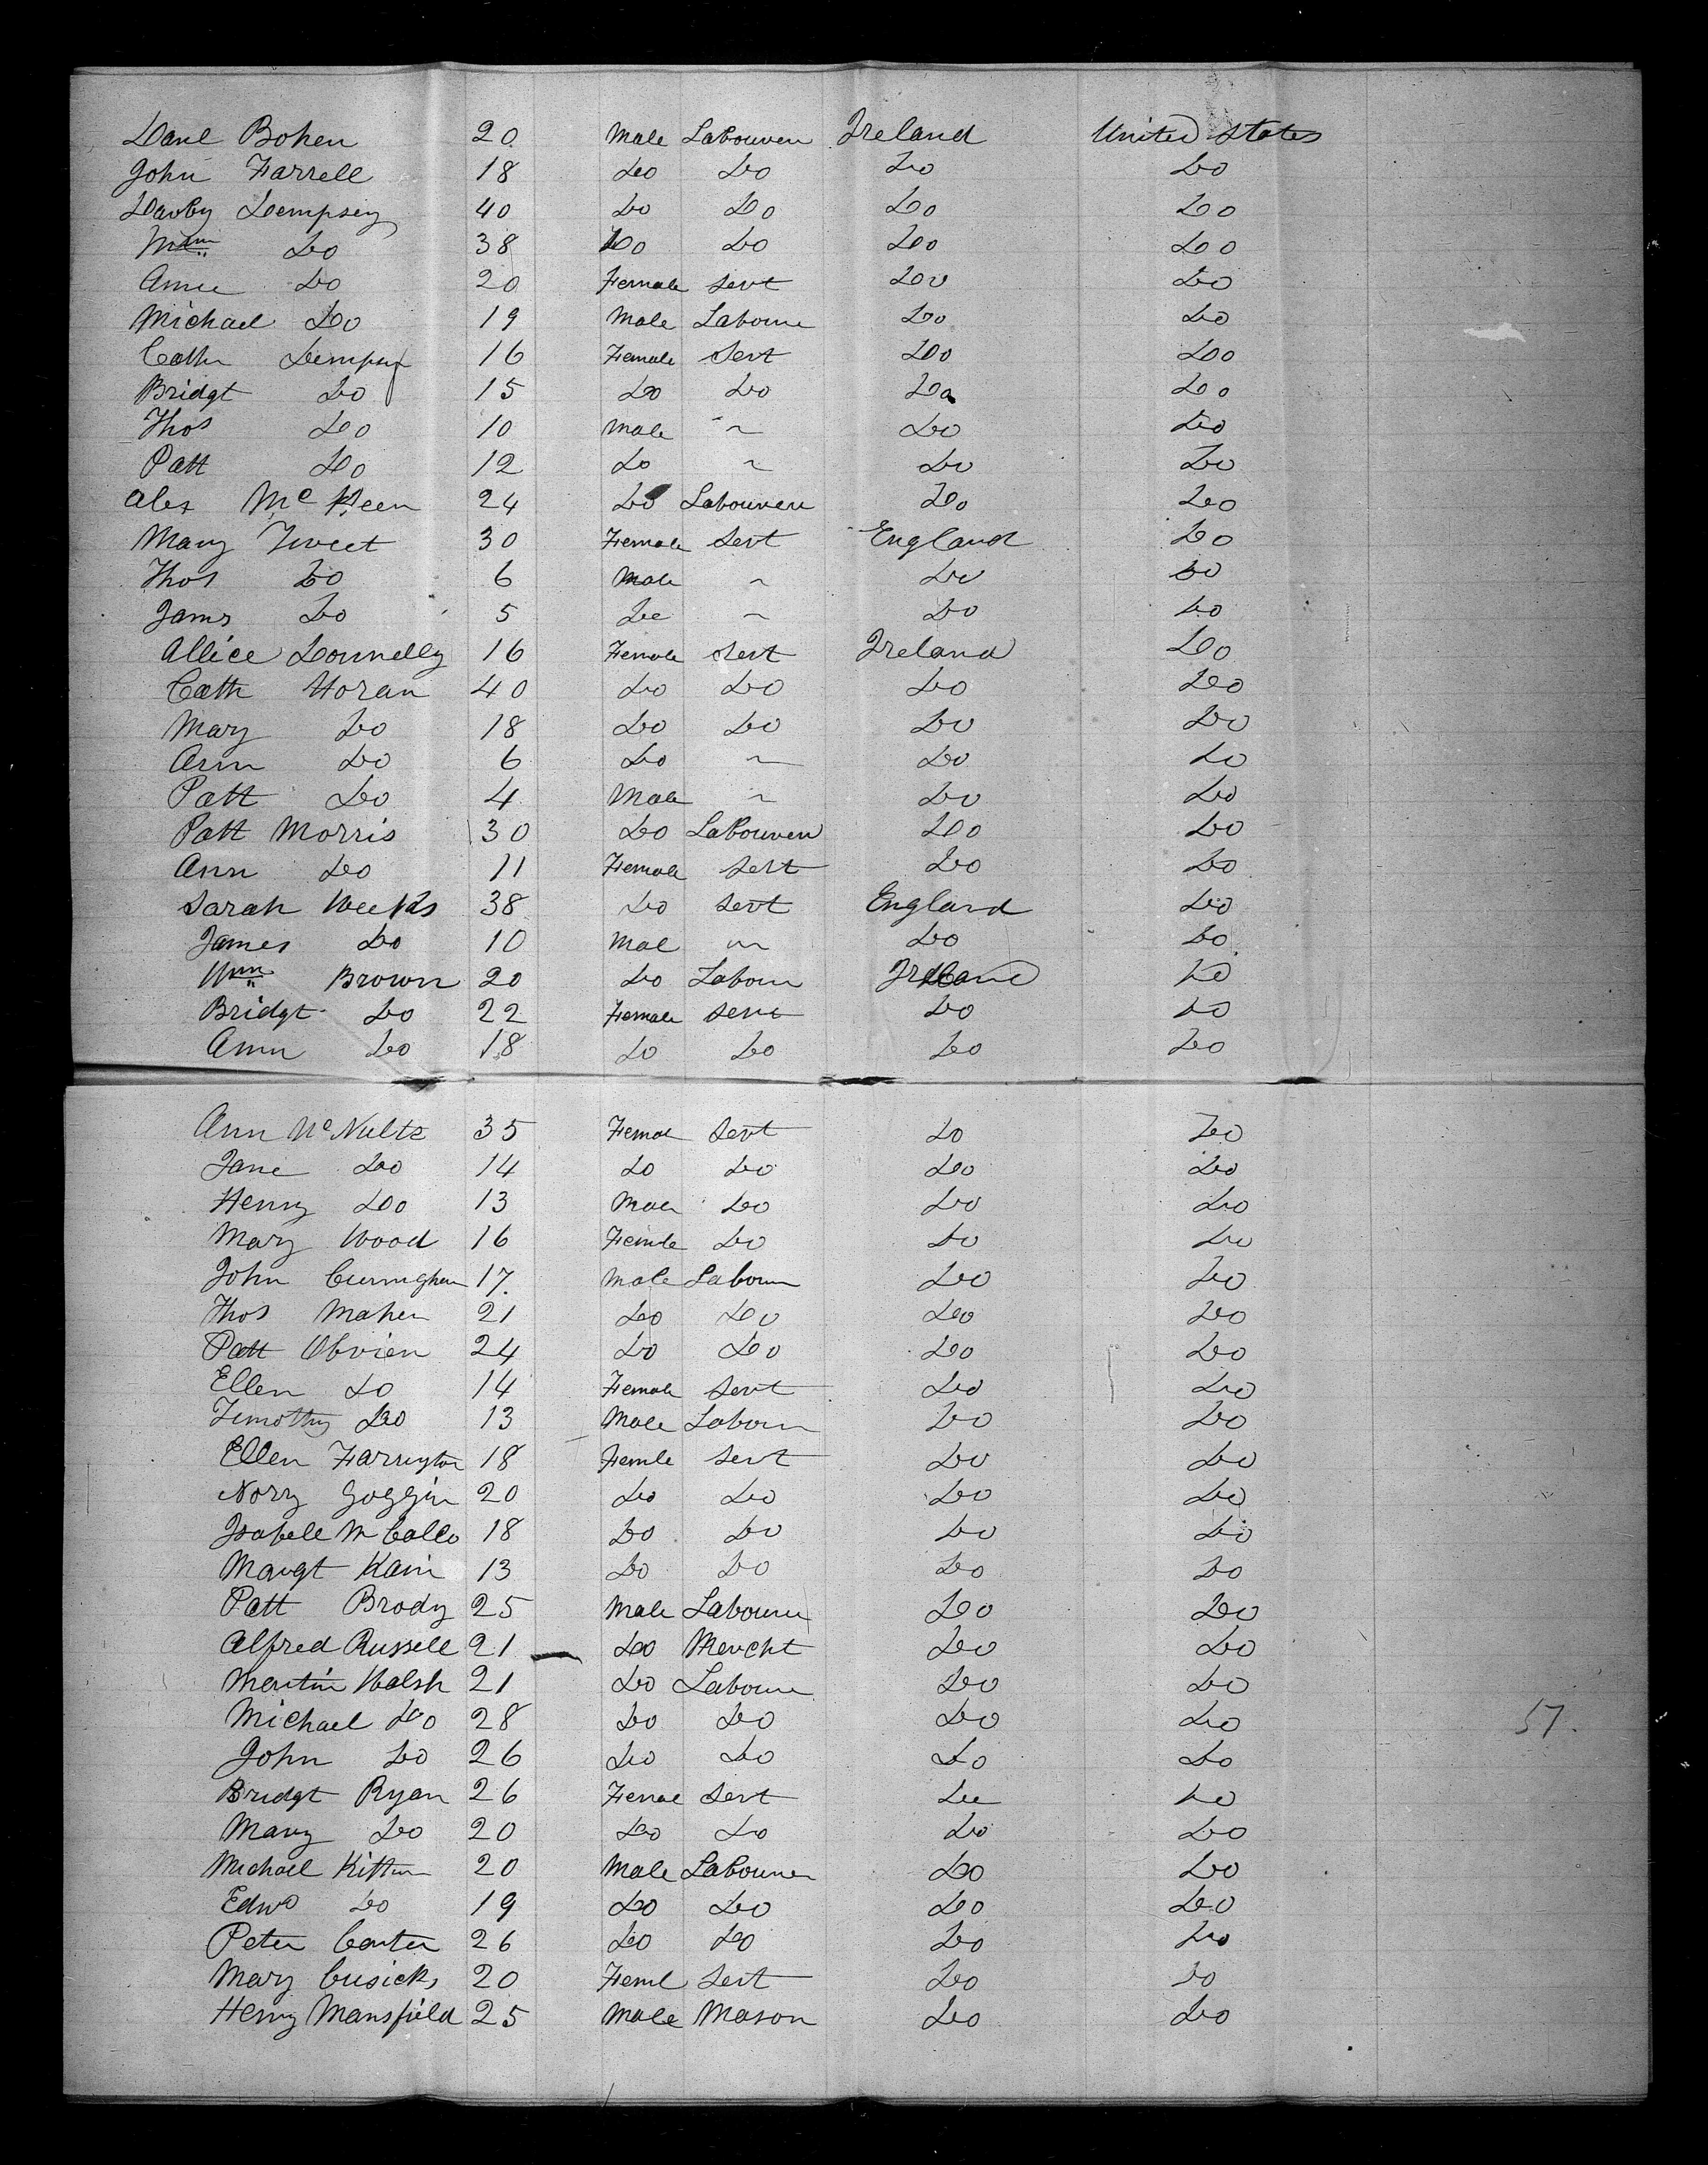 Danl Bohen 20 Male Labourer Ireland United States
John Farrell 18 Do Do Do Do
Darby Dempsey 40 Do Do Do Do
Wm Do 38 Do Do Do Do
Anne Do 20 Female Servt Do Do
Michael Do 19 Male Laboure Do Do
Cath Dempsy 16 Female Servt Do Do
Bridgt Do 15 Do Do Do Do
Thos Do 10 Male ~ Do Do
Patt Do 12 Do ~ Do Do
Alex Mc Keen 24 Do Labourer Do Do
Mary Tweet 30 Female Servt England Do
Thos Do 6 Male ~ Do Do
Jams Do 5 Do ~ Do Do
Allice Donnelly 16 Female Servt Ireland Do
Cath Horan 40 Do Do Do Do
Mary Do 18 Do Do Do Do
Ann Do 6 Do ~ Do Do
Patt Do 4 Male ~ Do Do
Patt Morris 30 Do Labourer Do Do
Ann Do 11 Female Servt Do Do
Sarah Weeks 38 Do Servt England Do
James Do 10 Mal ~ Do Do
Wm Brown 20 Do Labour Ireland Do
Bridgt Do 22 Female Servt Do Do
Ann Do 18 Do Do Do Do
Ann Mc Nulte 35 Femal Servt Do Do
Jane Do 14 Do Do Do Do
Henry Do 13 Male Do Do Do
Mary Wood 16 Femle Do Do Do
John Cuningham 17 Male Labour Do Do
Thos Maher 21 Do Do Do Do
Patt Obrien 24 Do Do Do Do
Ellen Do 14 Female Servt Do Do
Timothy Do 13 Male Labour Do Do
Ellen Farrington 18 Femle Servt Do Do
Nory Goggin 20 Do Do Do Do
Isabell 18 Do Do Do Do
Margt Kain 13 Do Do Do Do
Patt Brody 25 Male Laboure Do Do
Alfred Russell 21 Do Mercht Do Do
Martin Walsh 21 Do Laboure Do Do
Michael Do 28 Do Do Do Do
John Do 26 Do Do Do Do
57.
Bridgt Ryan 26 Femal Servt Do Do
Mary Do 20 Do Do Do Do
Michael 20 Male Labourer Do Do
Edwd Do 19 Do Do Do Do
Peter Carter 26 Do Do Do Do
Mary Cusick 20 Feml Servt Do Do
Henry Mansfield 25 Male Mason Do Do